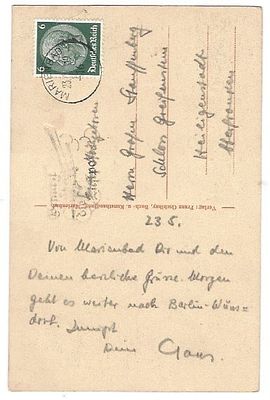 6
Deutsches Reich
6
MARIENBAD
Herrn Grafen Stauffenberg
Schloss Greifenstein
Heiligenstadt
Verlag: Franz Gschihay, Buch- u. Kunsthandlung, Marienbad.
23.5.
Von Marienbad Dir und den
Deinen herzliche Grüsse. Morgen
geht es weiter nach Berlin-Wüns=
dorf.
Dein Claus